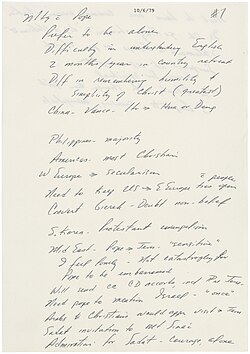 10/6/79
#1
Mtg c Pope
Prefer to be alone
Difficulty in understanding English
2 months/year in country retreat
Diff in remembering humility &
simplicity of Christ (greatest)
China - Vance - Hua or Deng
Philippines majority
Americas most Christian
W Europe → secularism
Need to keep US → E Europe
people
Convert Creed - Doubt non-belief
S. Korea - Protestant
Mid East - Pope → Jerus - "sensitive"
I feel lonely - Not catastrophy for
Pope to be embarrassed
Will send cc CD accords, not Jerus.
Need pope to mention Israel - "once"
Arabs & Christians would oppose visit → Jerus
Sadat invitation to mt Sinai
Admiration for Sadat - Courage, alone